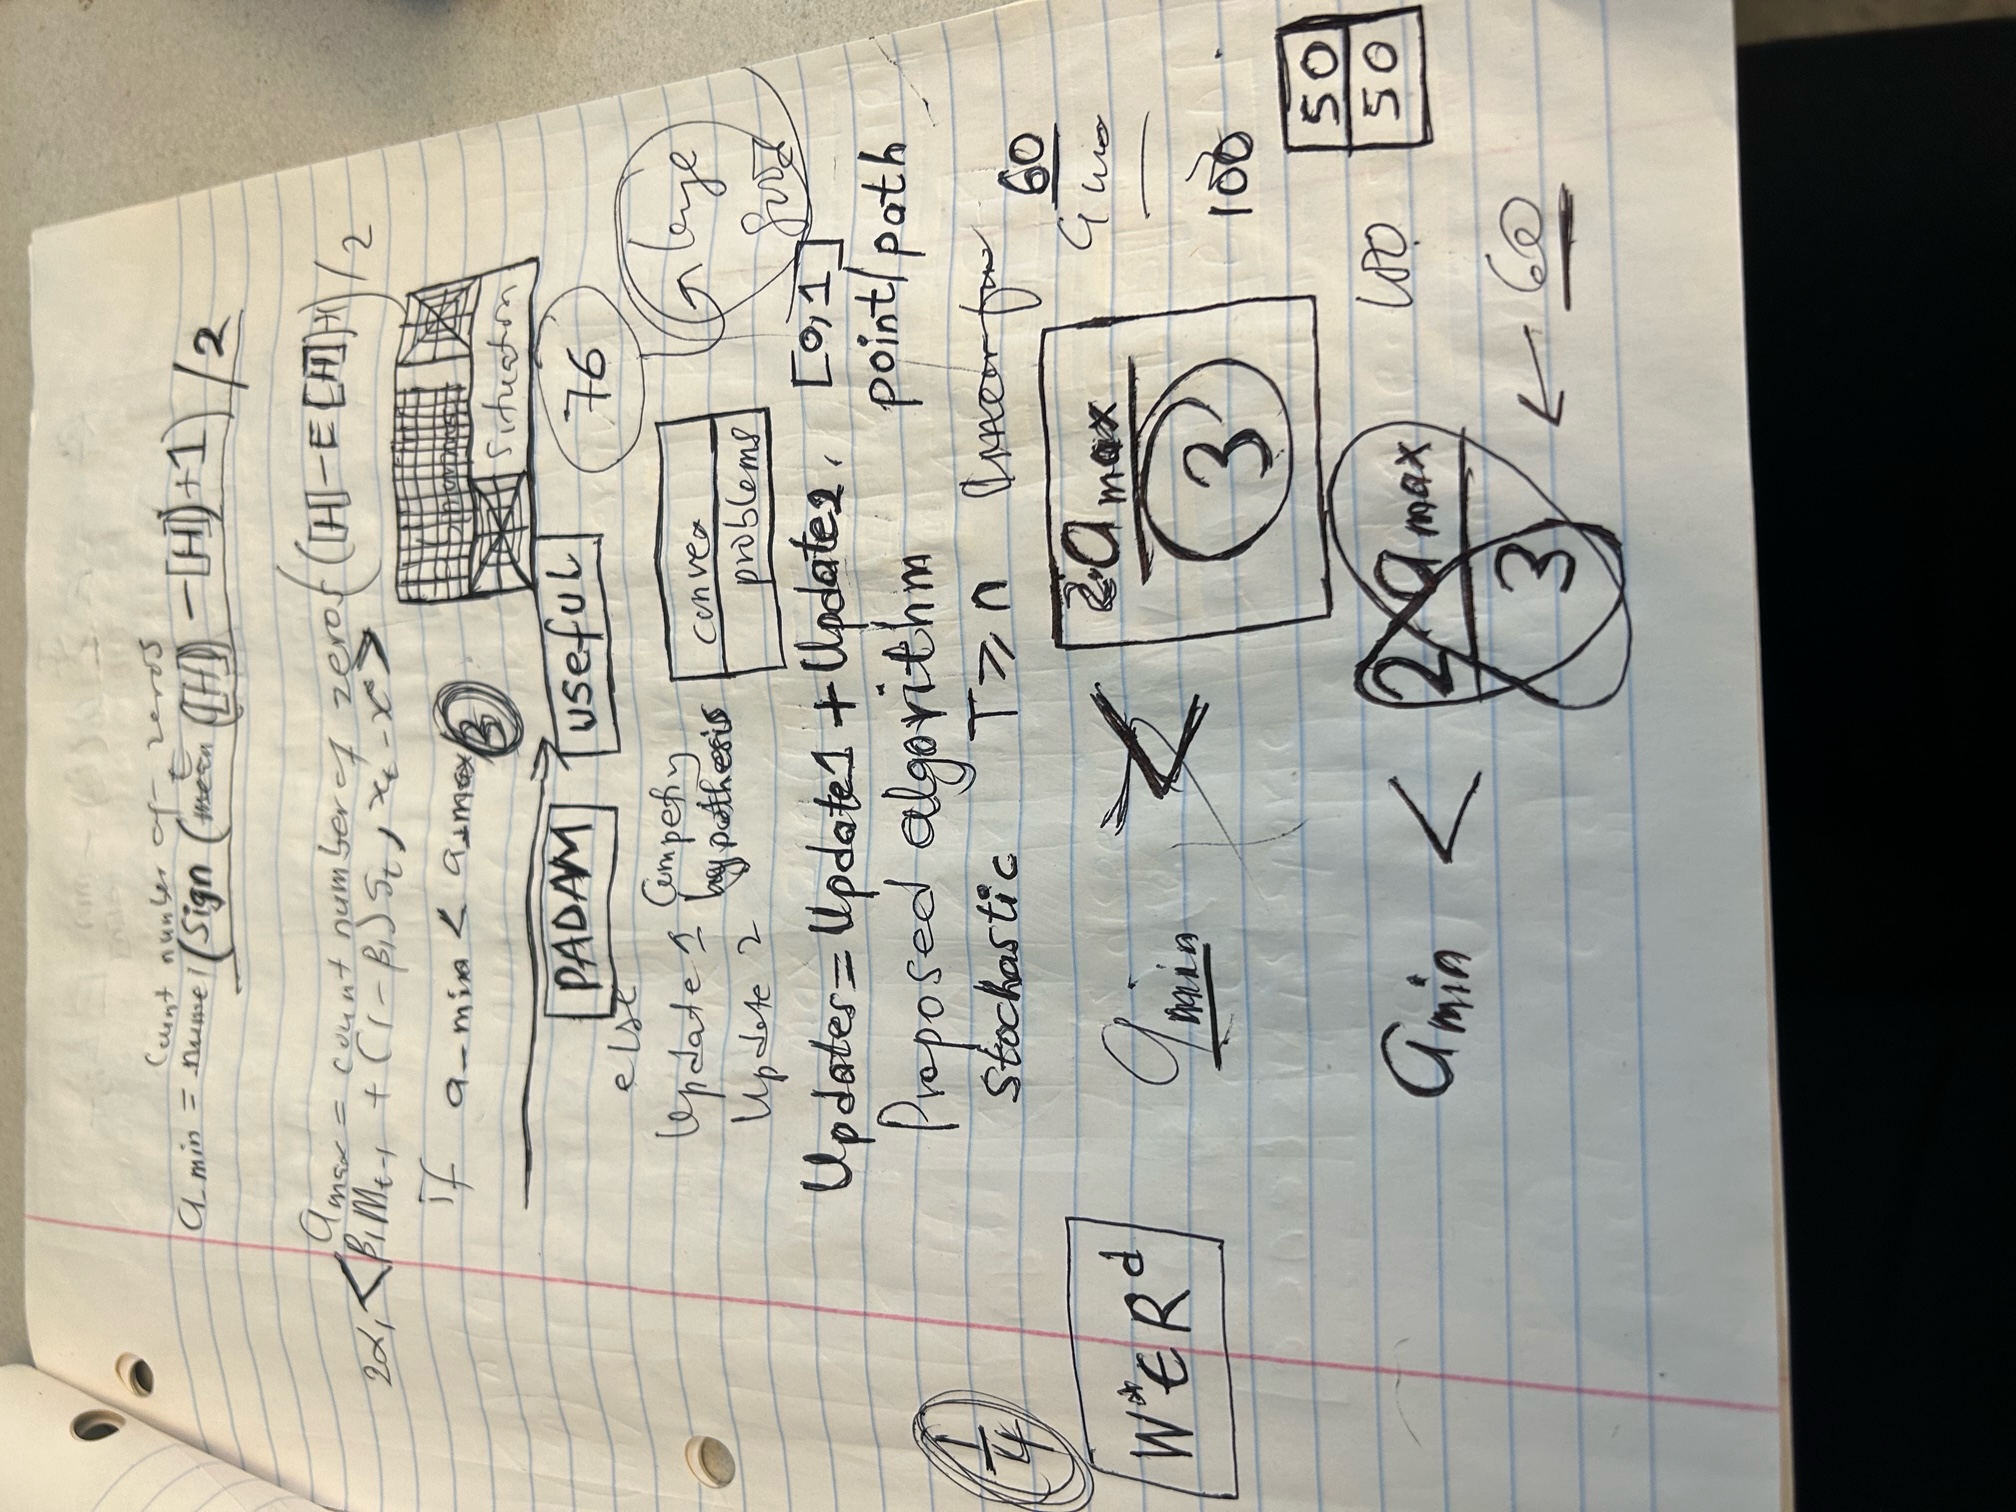 Count number of zeros
a_min = numel (Sign (mean ([H]) - [H]) + 1) / 2
E
a max = count number of zeros ( ([H] - E [H]) + ) / 2
2α, < β₁ M t-1 + (1 - β₁) S t , x t - x* >
if a_min < a_max 3
situation
PADAM useful
76
else
Update 1 Competing hypothesis
Update 2
convex
problems
large
good
Updates = Update1 + Update2. [0,1]
Proposed algorithm point/path
Stochastic T ⩾ n
1/4
W* ∈ R^d
a min < 2·a max / 3
60
100
50
50
a min < 2 a max / 3 ← 60
100